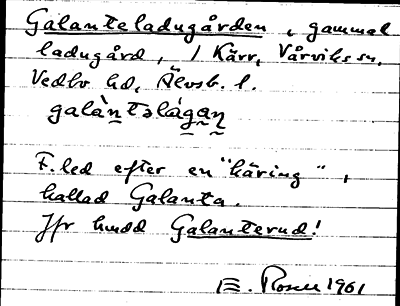 Galanteladugården, gammal
ladugård, i Kärr, Vårviks sn.
Vedbo hd, Älvsb. l.
galàntəlágan
F.led efter en "häring",
kallad Galanta.
Jfr hmdd Galanterud!
E. Rosell 1961